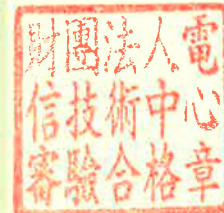 財團法人電
信技術中心
審驗合格章